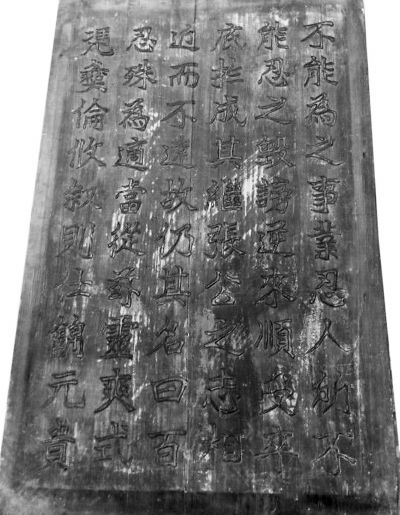 不能為之事業忍人所不
能忍之毀謗逆來順受卒
底扵成其繼張公之志相
近而不遠故仍其名曰百
忍殊為適當從茲靈爽式
凴彝倫攸叙則仕鶴元貴